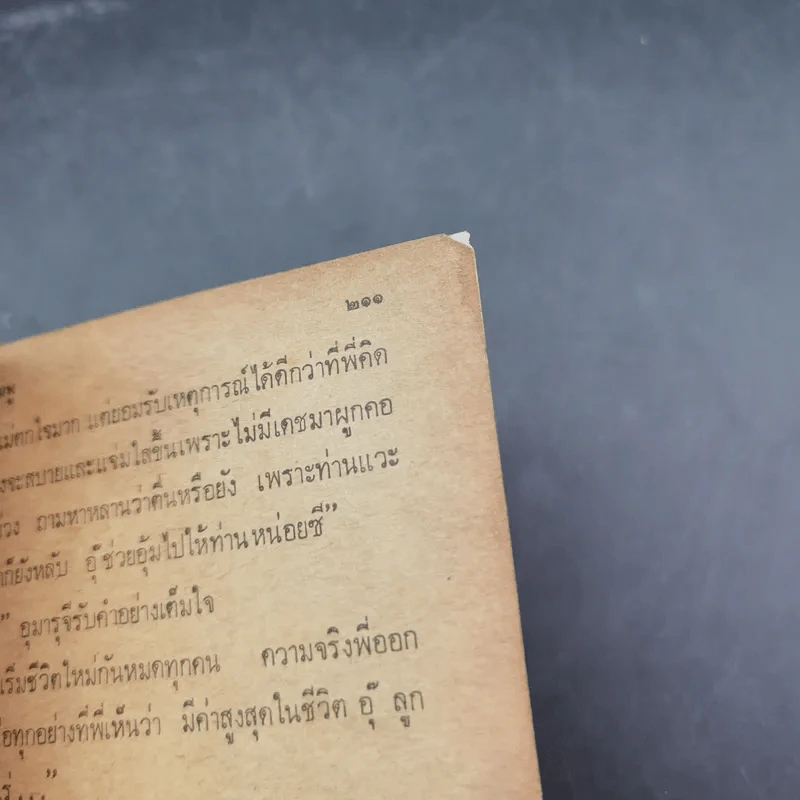 ๒๑๑
แม่ตกใจมาก แต่ยอมรับเหตุการณ์ได้ดีกว่าที่พี่คิด
จะสบายและแจ่มใสขึ้นเพราะไม่มีเดชมาผูกคอ
ถามหาหลานว่าตื่นหรือยัง เพราะท่านแวะ
ก็ยังหลับ อุ๊ช่วยอุ้มไปให้ท่านหน่อยซี”
” อุมารุจีรับคำอย่างเต็มใจ
เริ่มชีวิตใหม่กันหมดทุกคน ความจริงพี่ออก
ทุกอย่างที่พี่เห็นว่า มีค่าสูงสุดในชีวิต อุ๊ ลูก
...”